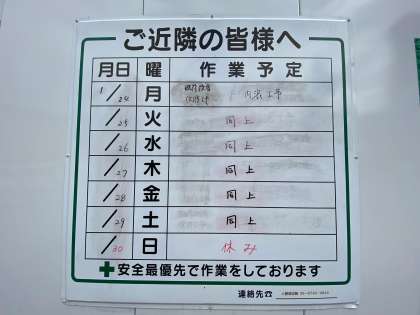 ご近隣の皆様へ
月日 曜 作業予定
1/24 月 内装工事
/25 火 同上
/26 水 同上
/27 木 同上
/28 金 同上
/29 土 同上
/30 日 休み
安全最優先で作業をしております
連絡先☎